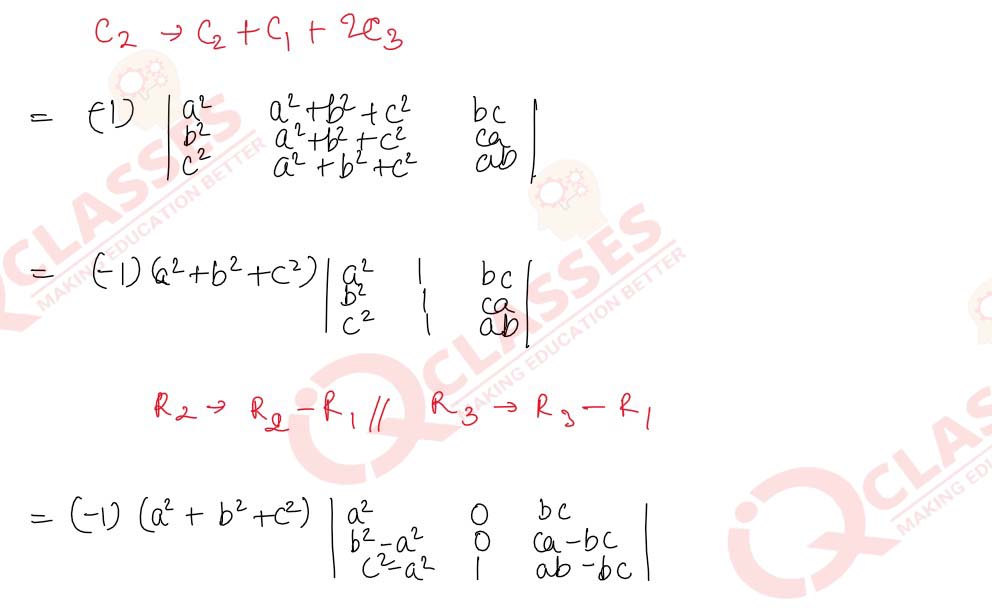 C₂ → C₂ + C₁ + 2C₃
= (-1) | a² a²+b²+c² bc |
| b² a²+b²+c² ca |
| c² a²+b²+c² ab |
= (-1) (a²+b²+c²) | a² 1 bc |
| b² 1 ca |
| c² 1 ab |
R₂ → R₂ - R₁ // R₃ → R₃ - R₁
= (-1) (a² + b² + c²) | a² 0 bc |
| b²-a² 0 ca-bc |
| c²-a² 1 ab-bc |
QCLASSES
MAKING EDUCATION BETTER
iQCLASSES
MAKING EDUCATION BETTER
iQCLAS
MAKING EDUC